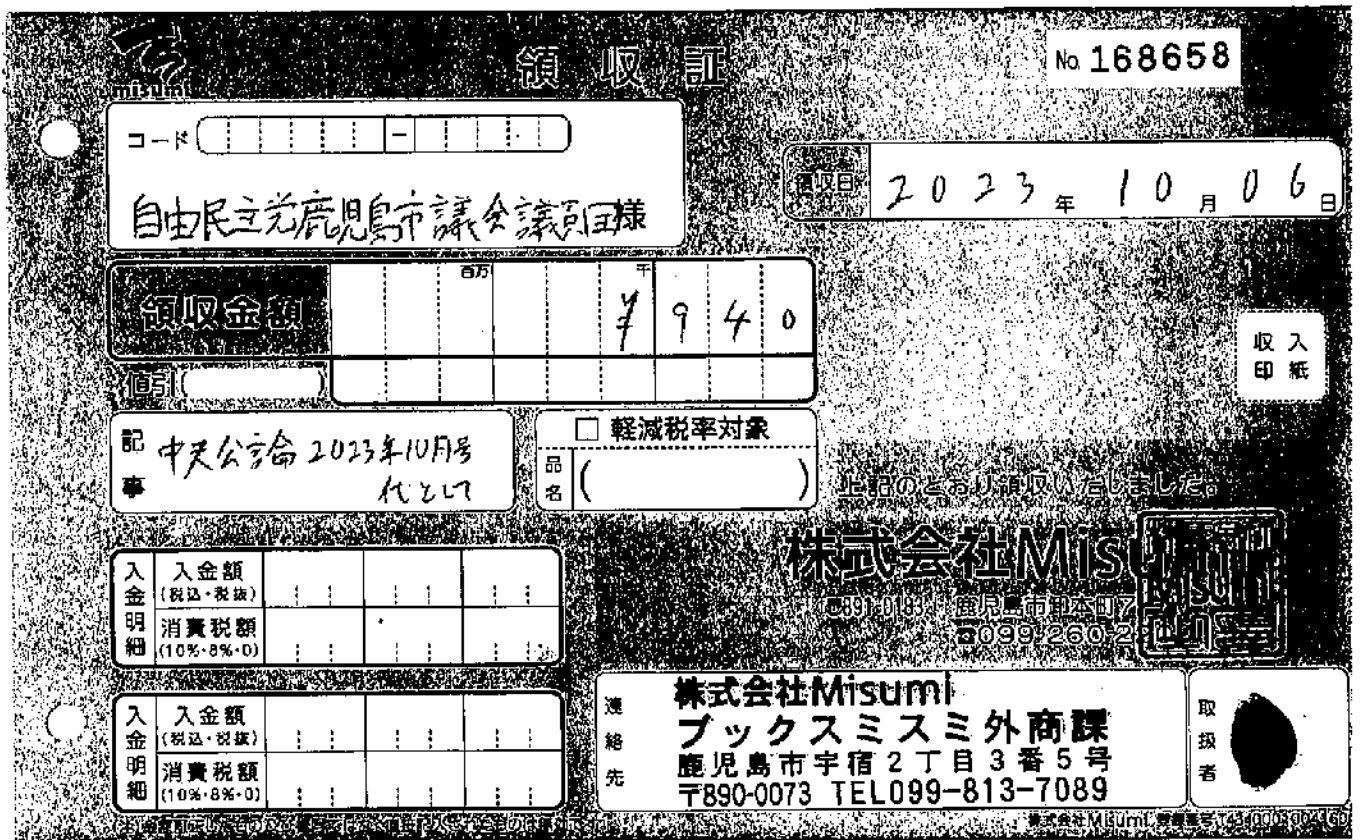 misumi
領収証
No. 168658
コード
自由民主党鹿児島市議会議員団様
領収日 2023年10月06日
百万 千
領収金額 ¥940
値引( )
収入印紙
記事 中央公論2023年10月号
代として
□ 軽減税率対象
品名 ( )
上記のとおり領収いたしました。
株式会社Misumi
〒891-0183 鹿児島市卸本町7
☎099-260-2
入金明細 入金額
(税込・税抜)
消費税額
(10%・8%・0)
入金明細 入金額
(税込・税抜)
消費税額
(10%・8%・0)
連絡先 株式会社Misumi
ブックスミスミ外商課
鹿児島市宇宿2丁目3番5号
〒890-0073 TEL099-813-7089
取扱者
株式会社Misumi 登録番号